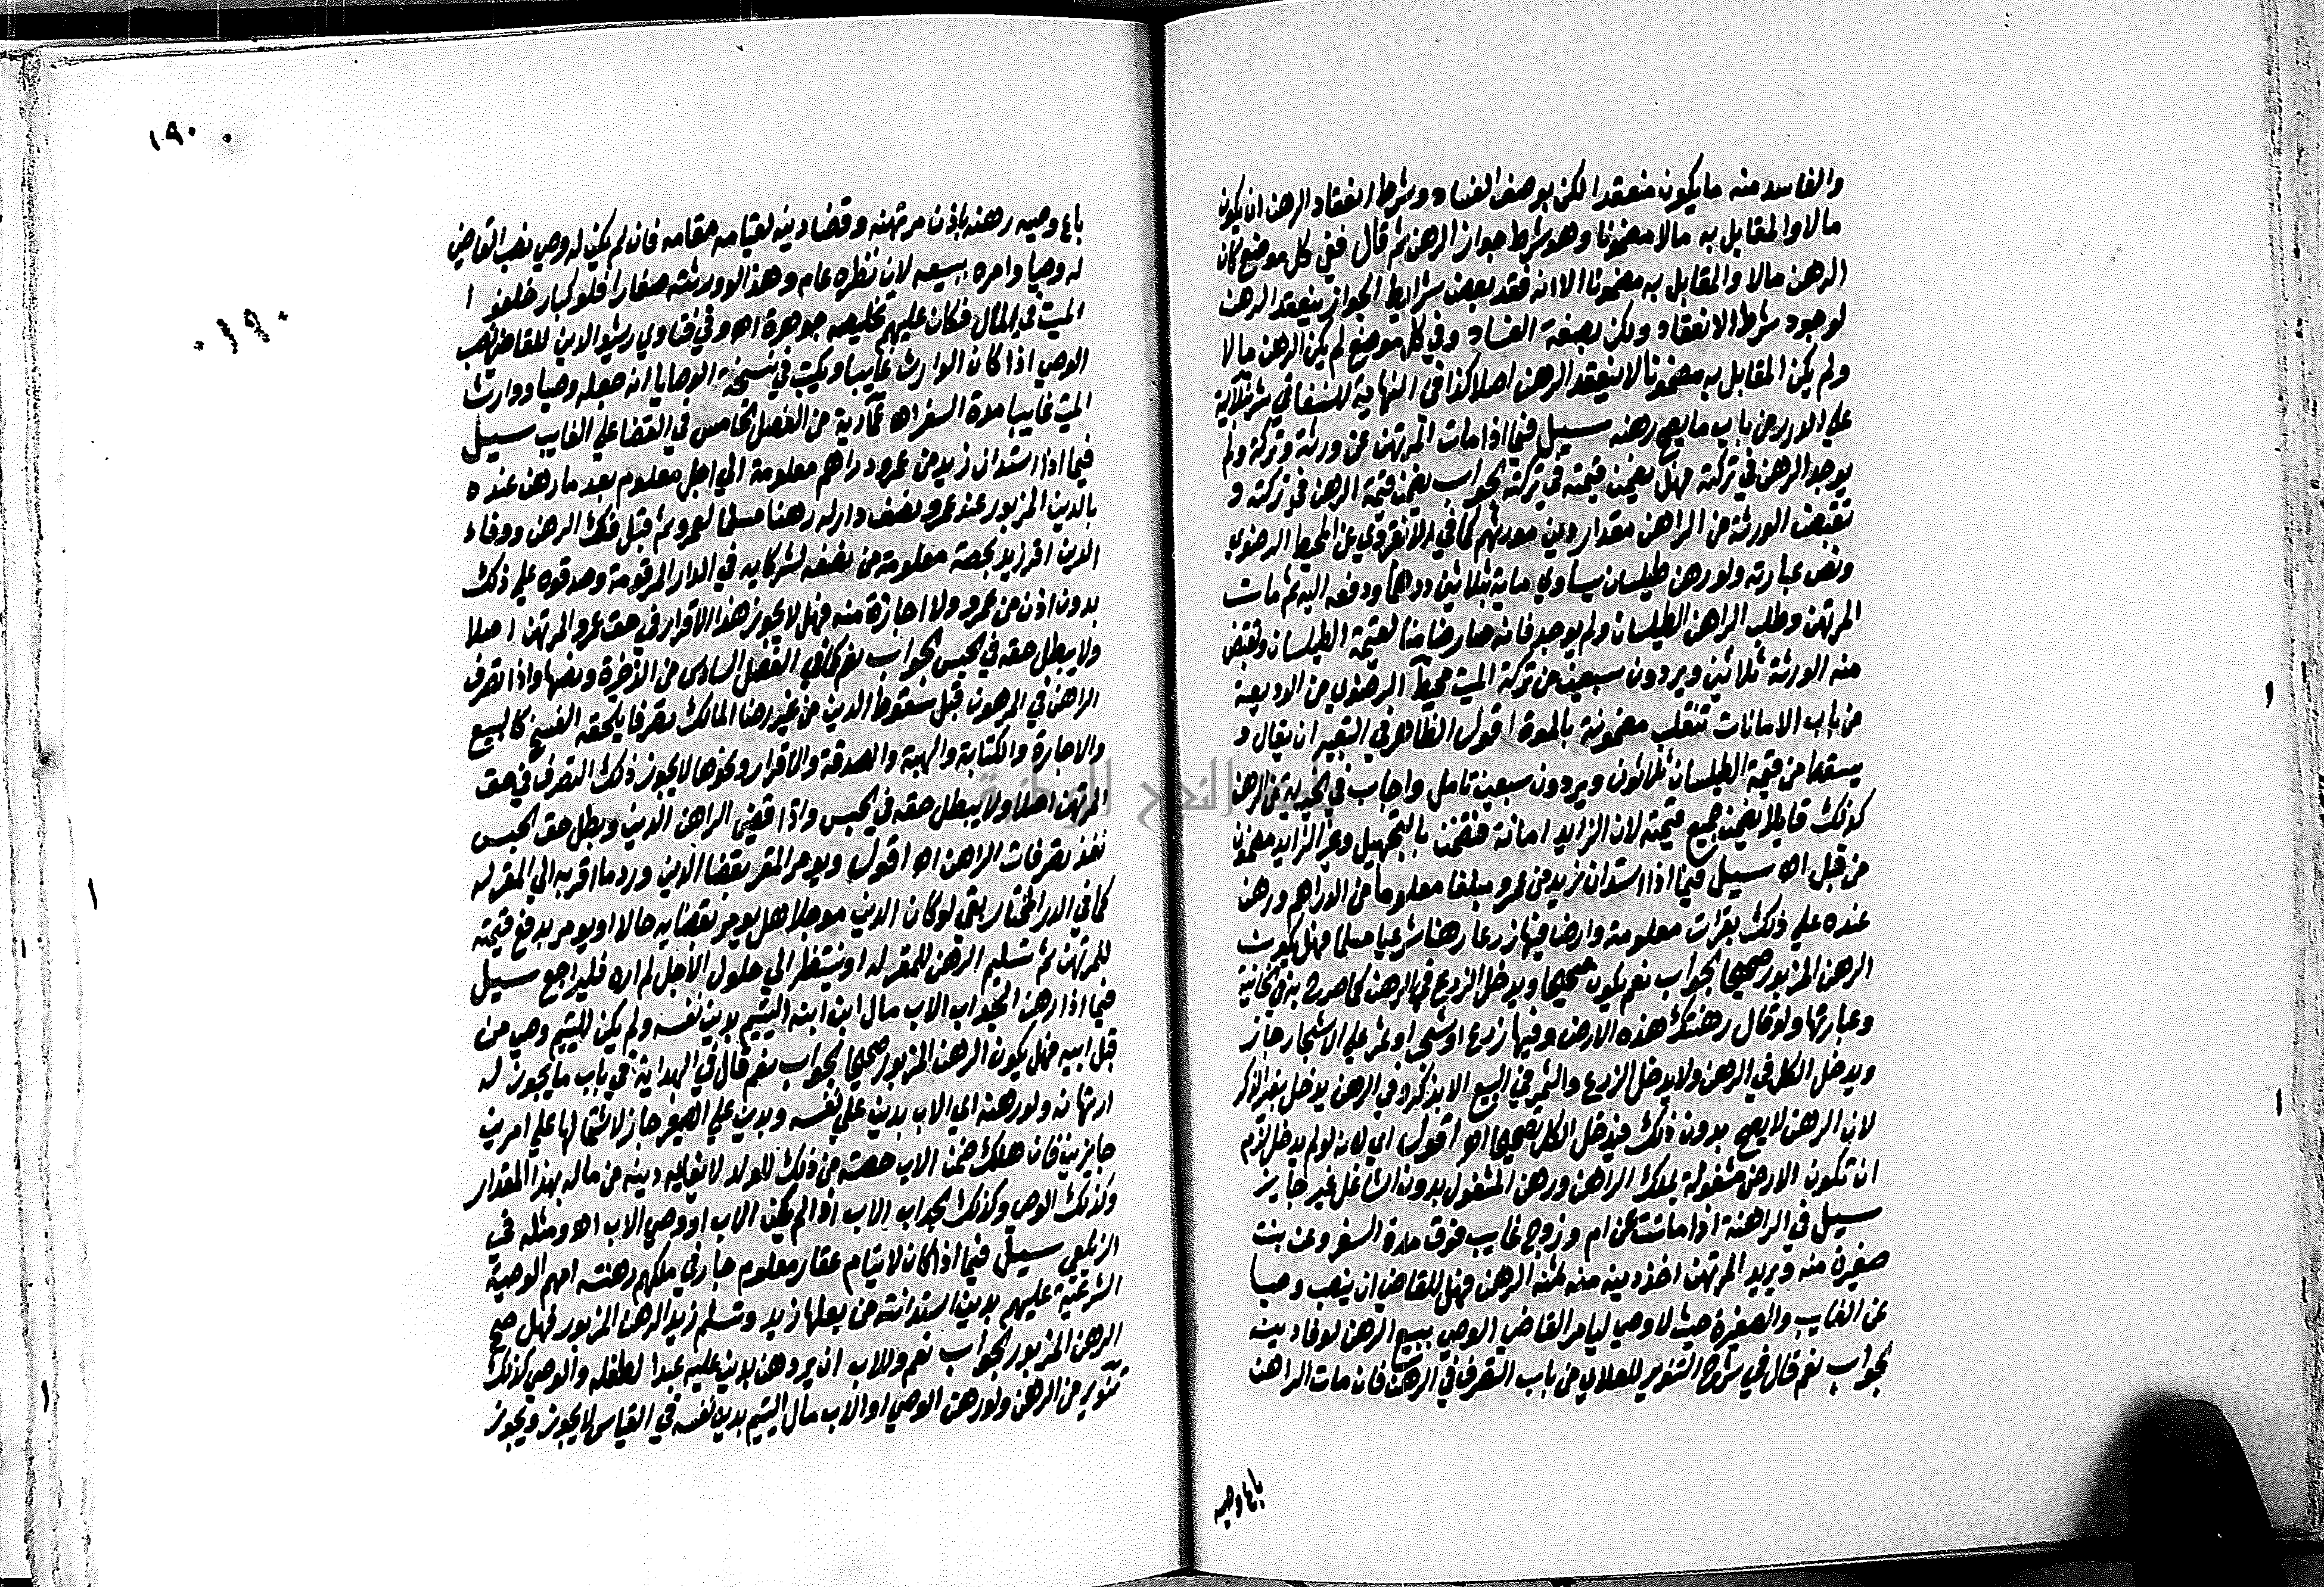 والفاسد منه ما يكون منعقدا لكن بوصف الفساد وشرط انعقاد الرهن ان يكون
مالا والمقابل به مالا مضمونا وهو شرط جواز الرهن ثم قال ففي كل موضع كان
الرهن مالا والمقابل به مضمونا الا انه فقد بعض شرايط الجواز ينعقد الرهن
لوجود شرط الانعقاد ولكن بصفة الفساد وفي كل موضع لم يكن الرهن مالا
ولم يكن المقابل به مضمونا لا ينعقد الرهن اصلا كذا في النهاية للسغناقي شرنبلالية
علي الدرر من باب ما يصح رهنه سيل فيما اذا مات المرتهن عن ورثة وتركة ولم
يوجد الرهن في تركته فهل يضمن قيمته في تركته الجواب يضمن قيمة الرهن في تركته و
تقبض الورثة من الراهن مقدار دين مورثهم كما في الانقروي عن المحيط الرضوي
ونص عبارته ولو رهن طيلسان يساوي ماية بثلاثين درهما ودفعه اليه ثم مات
المرتهن وطلب الراهن الطيلسان ولم يوجد فانه صار ضامنا لقيمة الطيلسان وتقبض
منه الورثة ثلاثين ويردون سبعين من تركة الميت محيط الرضوي من الوديعة
من باب الامانات تنقلب مضمونة بالموت اقول الظاهر في التعبير ان يقال و
يسقط من قيمة الطيلسان ثلاثون ويردون سبعين تامل واجاب في الخيرية في الرهن
كذلك قايلا يضمن جميع قيمته لان الزايد امانة فتضمن بالتجهيل وغير الزايد مضمون
من قبل اه سيل فيما اذا استدان زيد من عمرو مبلغا معلوما من الدراهم ورهن
عنده علي ذلك بقرات معلومة وارضا فيها زرعا رهنا شرعيا مسلما فهل يكون
الرهن المزبور صحيحا الجواب نعم يكون صحيحا ويدخل الزرع في الرهن كما صرح به في الخانية
وعبارتها ولو قال رهنتك هذه الارض وفيها زرع او شجر او ثمر علي الاشجار جاز
ويدخل الكل في الرهن ولا يدخل الزرع والثمر في البيع الا بذكر وفي الرهن يدخل بغير الذكر
لان الرهن لا يصح بدون ذلك فيدخل الكل تصحيحا اه اقول اي لانه لو لم يدخل لزم
ان تكون الارض مشغولة بملك الراهن ورهن المشغول بدون الشاغل غير جايز
سيل في الراهنة اذا ماتت عن ام وزوج غايب فوق مدة السفر وعن بنت
صغيرة منه ويريد المرتهن اخذ دينه منه ثمنه الرهن فهل للقاضي ان ينصب وصيا
عن الغايب والصغيرة حيث لا وصي ليامر القاضي الوصي ببيع الرهن لوفا دينه
الجواب نعم قال في شرح التنوير للعلاي من باب التصرف في الرهن فان مات الراهن
باع وصيه
١٩٠
١٩٠
باع وصيه رهنه باذن مرتهنه وقضا دينه لقيامه مقامه فان لم يكن له وصي نصب القاضي
له وصيا وامره ببيعه لان نظره عام وهذا لو ورثته صغارا فلو كبارا خلفوا
الميت في المال فكان عليهم تخليصه جوهرة اه وفي فتاوي رشيد الدين للقاضي نصب
الوصي اذا كان الوارث غايبا ويكتب في نسخة الوصايا انه جعله وصيا ووارث
الميت غايبا مدة السفر اه عمادية من الفصل الخامس في القضا علي الغايب سيل
فيما اذا استدان زيد من عمرو دراهم معلومة الي اجل معلوم بعد ما رهن عنده
بالدين المزبور عند عمرو نصف دار له رهنا مسلما لعمرو ثم قبل فك الرهن ووفاء
الدين اقر زيد بحصة معلومة من نصفه لشركايه في الدار المرقومة وصدقوه علي ذلك
بدون اذن من عمرو ولا اجازة منه فهل لا يجوز هذا الاقرار في حق عمرو المرتهن اصلا
ولا يبطل حقه في الحبس الجواب نعم كما في الفصل السادس من الذخيرة ونصها واذا تصرف
الراهن في المرهون قبل سقوط الدين من غير رضا المالك تصرفا يلحقه الفسخ كالبيع
والاجارة والكتابة والهبة والصدقة والاقرار ونحوها لا يجوز ذلك التصرف في حق
المرتهن اصلا ولا يبطل حقه في الحبس واذا قضي الراهن الدين وبطل حق الحبس
نفذ تصرفات الراهن اه اقول ويومر المقر بقضا الدين ورد ما اقر به الي المقر له
كما في الدر المختار بقي لو كان الدين موجلا هل يومر بقضايه حالا او يومر بدفع قيمته
للمرتهن ثم تسليم الرهن للمقر له او ينتظر الي حلول الاجل لم اره فليراجع سيل
فيما اذا رهن الجد اب الاب مال ابن ابنه اليتيم بدين نفسه ولم يكن لليتيم وصي من
قبل ابيه فهل يكون الرهن المزبور صحيحا الجواب نعم قال في الهداية في باب ما يجوز له
ارتهانه ولو رهنه اي الاب بدين علي نفسه وبدين علي الصغير جاز لاشتمالها علي امرين
جايزين فان هلك ضمن الاب حصته من ذلك للولد لانفايه دينه من ماله بهذا المقدار
وكذلك الوصي وكذلك الجد اب الاب اذا لم يكن الاب او وصي الاب اه ومثله في
الزيلعي سيل فيما اذا كان لايتام عقار معلوم جار في ملكهم رهنته امهم الوصية
الشرعية عليهم بدين استدانته من بعلها زيد وتسلم زيد الرهن المزبور فهل صح
الرهن المزبور الجواب نعم وللاب ان يرهن بدين عليه عبدا لطفله والوصي كذلك
تنوير من الرهن ولو رهن الوصي او الاب مال اليتيم بدين نفسه في القياس لا يجوز ويجوز